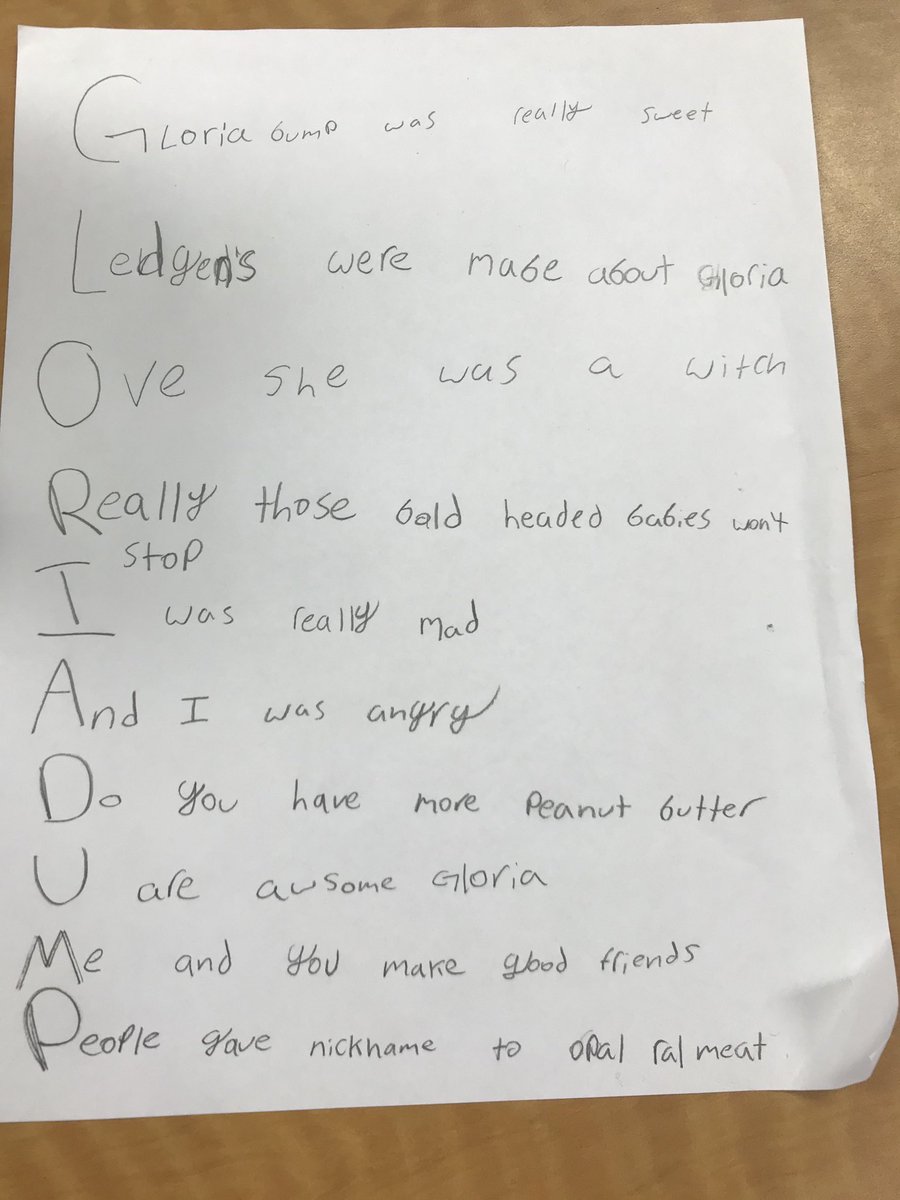 Gloria bump was really sweet
Ledgen's were made about Gloria
Ove she was a witch
Really those bald headed babies won't
stop
I was really mad
And I was angry
Do you have more Peanut butter
U are awsome Gloria
Me and you make good friends
People gave nickname to opal ral meat